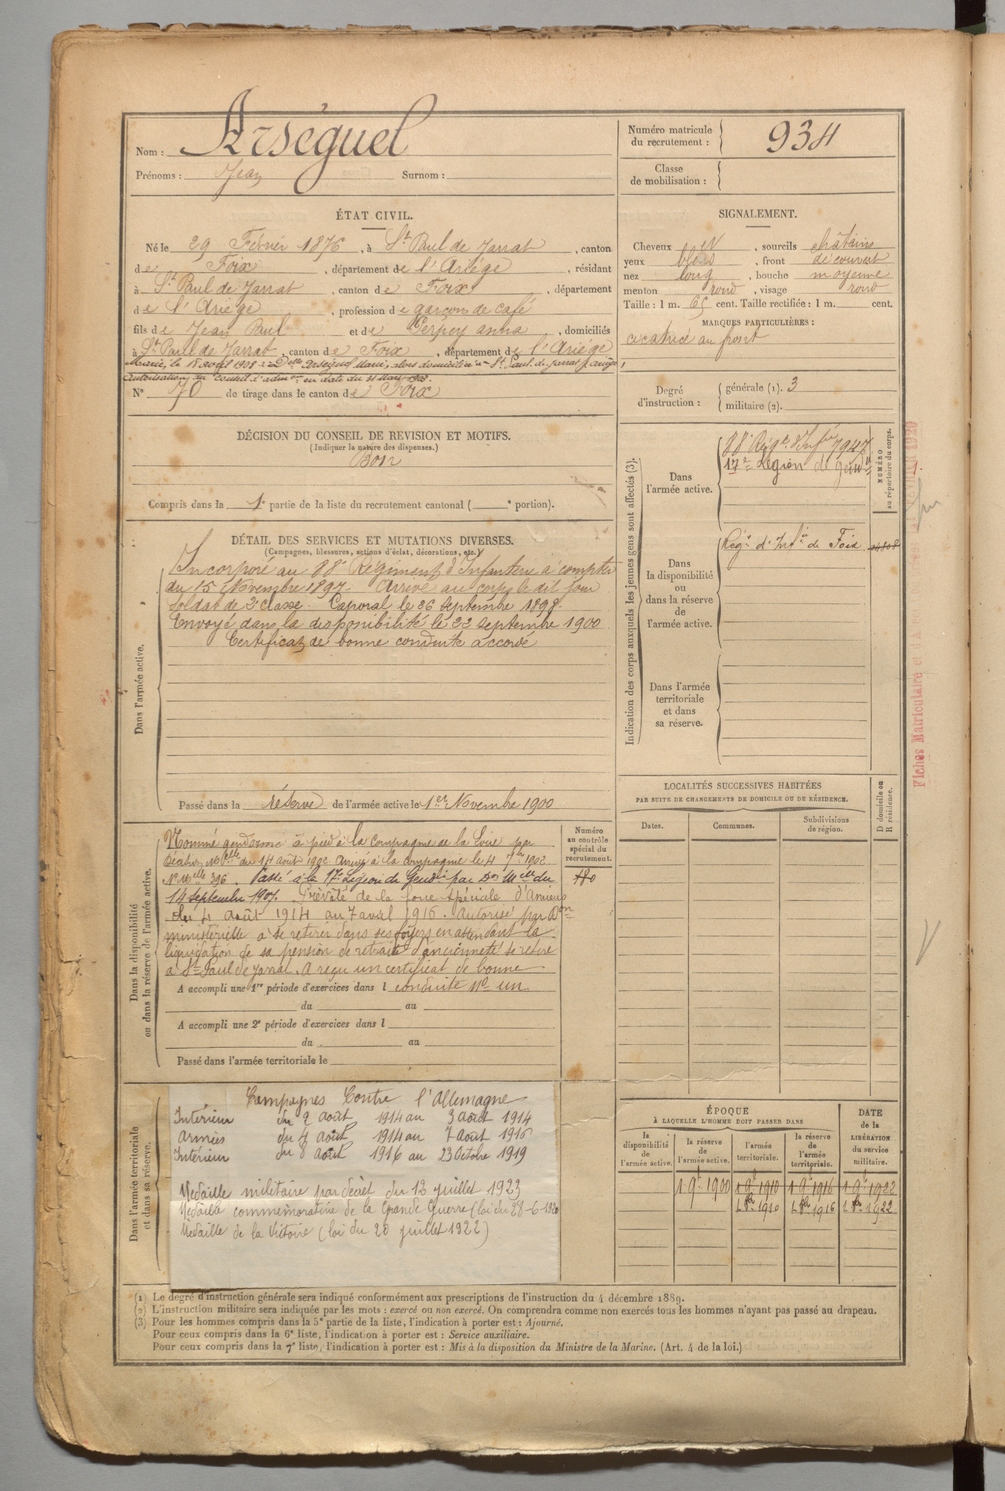 Nom : Arséguel
Prénoms : Jean Surnom :
Numéro matricule du recrutement : 934
Classe de mobilisation :
ÉTAT CIVIL.
Né le 29 Février 1876, à St Paul de Jarrat, canton
de Foix, département de l'Ariège, résidant
à St Paul de Jarrat, canton de Foix, département
de l'Ariège, profession de garçon de café
fils de Jean Paul et de anna, domiciliés
à St Paul de Jarrat, canton de Foix, département de l'Ariège
Marié, le 18 août 1908 à Delle Arséguel Marie, alors domiciliée à St Paul de Jarrat Ariège
Autorisation du Conseil d'admon en date du 31 Mars 1908.
N° 70 de tirage dans le canton de Foix
SIGNALEMENT.
Cheveux, sourcils châtains
yeux bleus, front découvert
nez long, bouche moyenne
menton rond, visage rond
Taille : 1 m. 65 cent. Taille rectifiée : 1 m. cent.
MARQUES PARTICULIÈRES :
cicatrice au front
Degré d'instruction : générale (1). 3
militaire (2).
DÉCISION DU CONSEIL DE REVISION ET MOTIFS.
(Indiquer la nature des dispenses.)
Bon
Compris dans la 1e partie de la liste du recrutement cantonal ( e portion).
DÉTAIL DES SERVICES ET MUTATIONS DIVERSES.
(Campagnes, blessures, actions d'éclat, décorations, etc.)
Dans l'armée active.
Incorporé au 88e Régiment d'Infanterie à compter
du 15 Novembre 1897. Arrivé au corps le dit jour
Soldat de 2e classe. Caporal le 26 Septembre 1898.
Envoyé dans la disponibilité le 22 septembre 1900
Certificat de bonne conduite accordé
Passé dans la réserve de l'armée active le 1er Novembre 1900
Indication des corps auxquels les jeunes gens sont affectés (3).
Dans l'armée active.
88e Régt d'Infrie 7947
17e Légion de gendie
NUMÉRO au répertoire du corps.
Dans la disponibilité ou dans la réserve de l'armée active.
Régt d'Infie de Foix
Dans l'armée territoriale et dans sa réserve.
Fiches Matriculaire et
LOCALITÉS SUCCESSIVES HABITÉES
PAR SUITE DE CHANGEMENTS DE DOMICILE OU DE RÉSIDENCE.
Dates. Communes. Subdivisions de région.
D domicile ou R résidence.
Dans la disponibilité ou dans la réserve de l'armée active.
Numéro au contrôle spécial du recrutement.
Nommé gendarme à pied à la Compagnie de la Loire par
décision Mlle du 14 août 1902 arrivé à la compagnie le 4 7bre 1902
N° Mlle 396. Passé à la 17e Légion de Gendie par Don Mlle du
14 septembre 1907. Prévôté de la force spéciale d'Amiens
du 4 août 1914 au 7 avril 1916. autorisé par Don
ministérielle à se retirer dans ses foyers en attendant la
liquidation de sa pension de retraite d'ancienneté se retire
à St Paul de Jarrat. A reçu un certificat de bonne
A accompli une 1re période d'exercices dans l conduite No un
du au
A accompli une 2e période d'exercices dans l
du au
Passé dans l'armée territoriale le
Dans l'armée territoriale et dans sa réserve.
Campagnes Contre l'Allemagne
Intérieur du 2 août 1914 au 3 août 1914
Armées du 4 août 1914 au 7 Août 1916
Intérieur du 8 août 1916 au 23 Octobre 1919
Médaille militaire par décret du 12 juillet 1923
Médaille commémorative de la Grande Guerre (loi du 28-6-1920
Médaille de la Victoire (loi du 20 juillet 1922)
ÉPOQUE
À LAQUELLE L'HOMME DOIT PASSER DANS
la disponibilité de l'armée active. la réserve de l'armée active. l'armée territoriale. la réserve de l'armée territoriale.
DATE de la LIBÉRATION du service militaire.
1 9e 1900 1 9e 1910 1 9e 1916 1 9e 1922
1 8bre 1910 1 8bre 1916 1 8bre 1922
(1) Le degré d'instruction générale sera indiqué conformément aux prescriptions de l'instruction du 4 décembre 1889.
(2) L'instruction militaire sera indiquée par les mots : exercé ou non exercé. On comprendra comme non exercés tous les hommes n'ayant pas passé au drapeau.
(3) Pour les hommes compris dans la 5e partie de la liste, l'indication à porter est : Ajourné.
Pour ceux compris dans la 6e liste, l'indication à porter est : Service auxiliaire.
Pour ceux compris dans la 7e liste, l'indication à porter est : Mis à la disposition du Ministre de la Marine. (Art. 4 de la loi.)